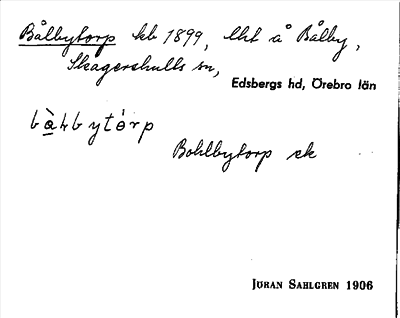 Bålbytorp kb 1899, lht å Bålby,
Skagershults sn,
Edsbergs hd, Örebro län
bà̱ɫbytórp
Bohlbytorp ek
JÖRAN SAHLGREN 1906